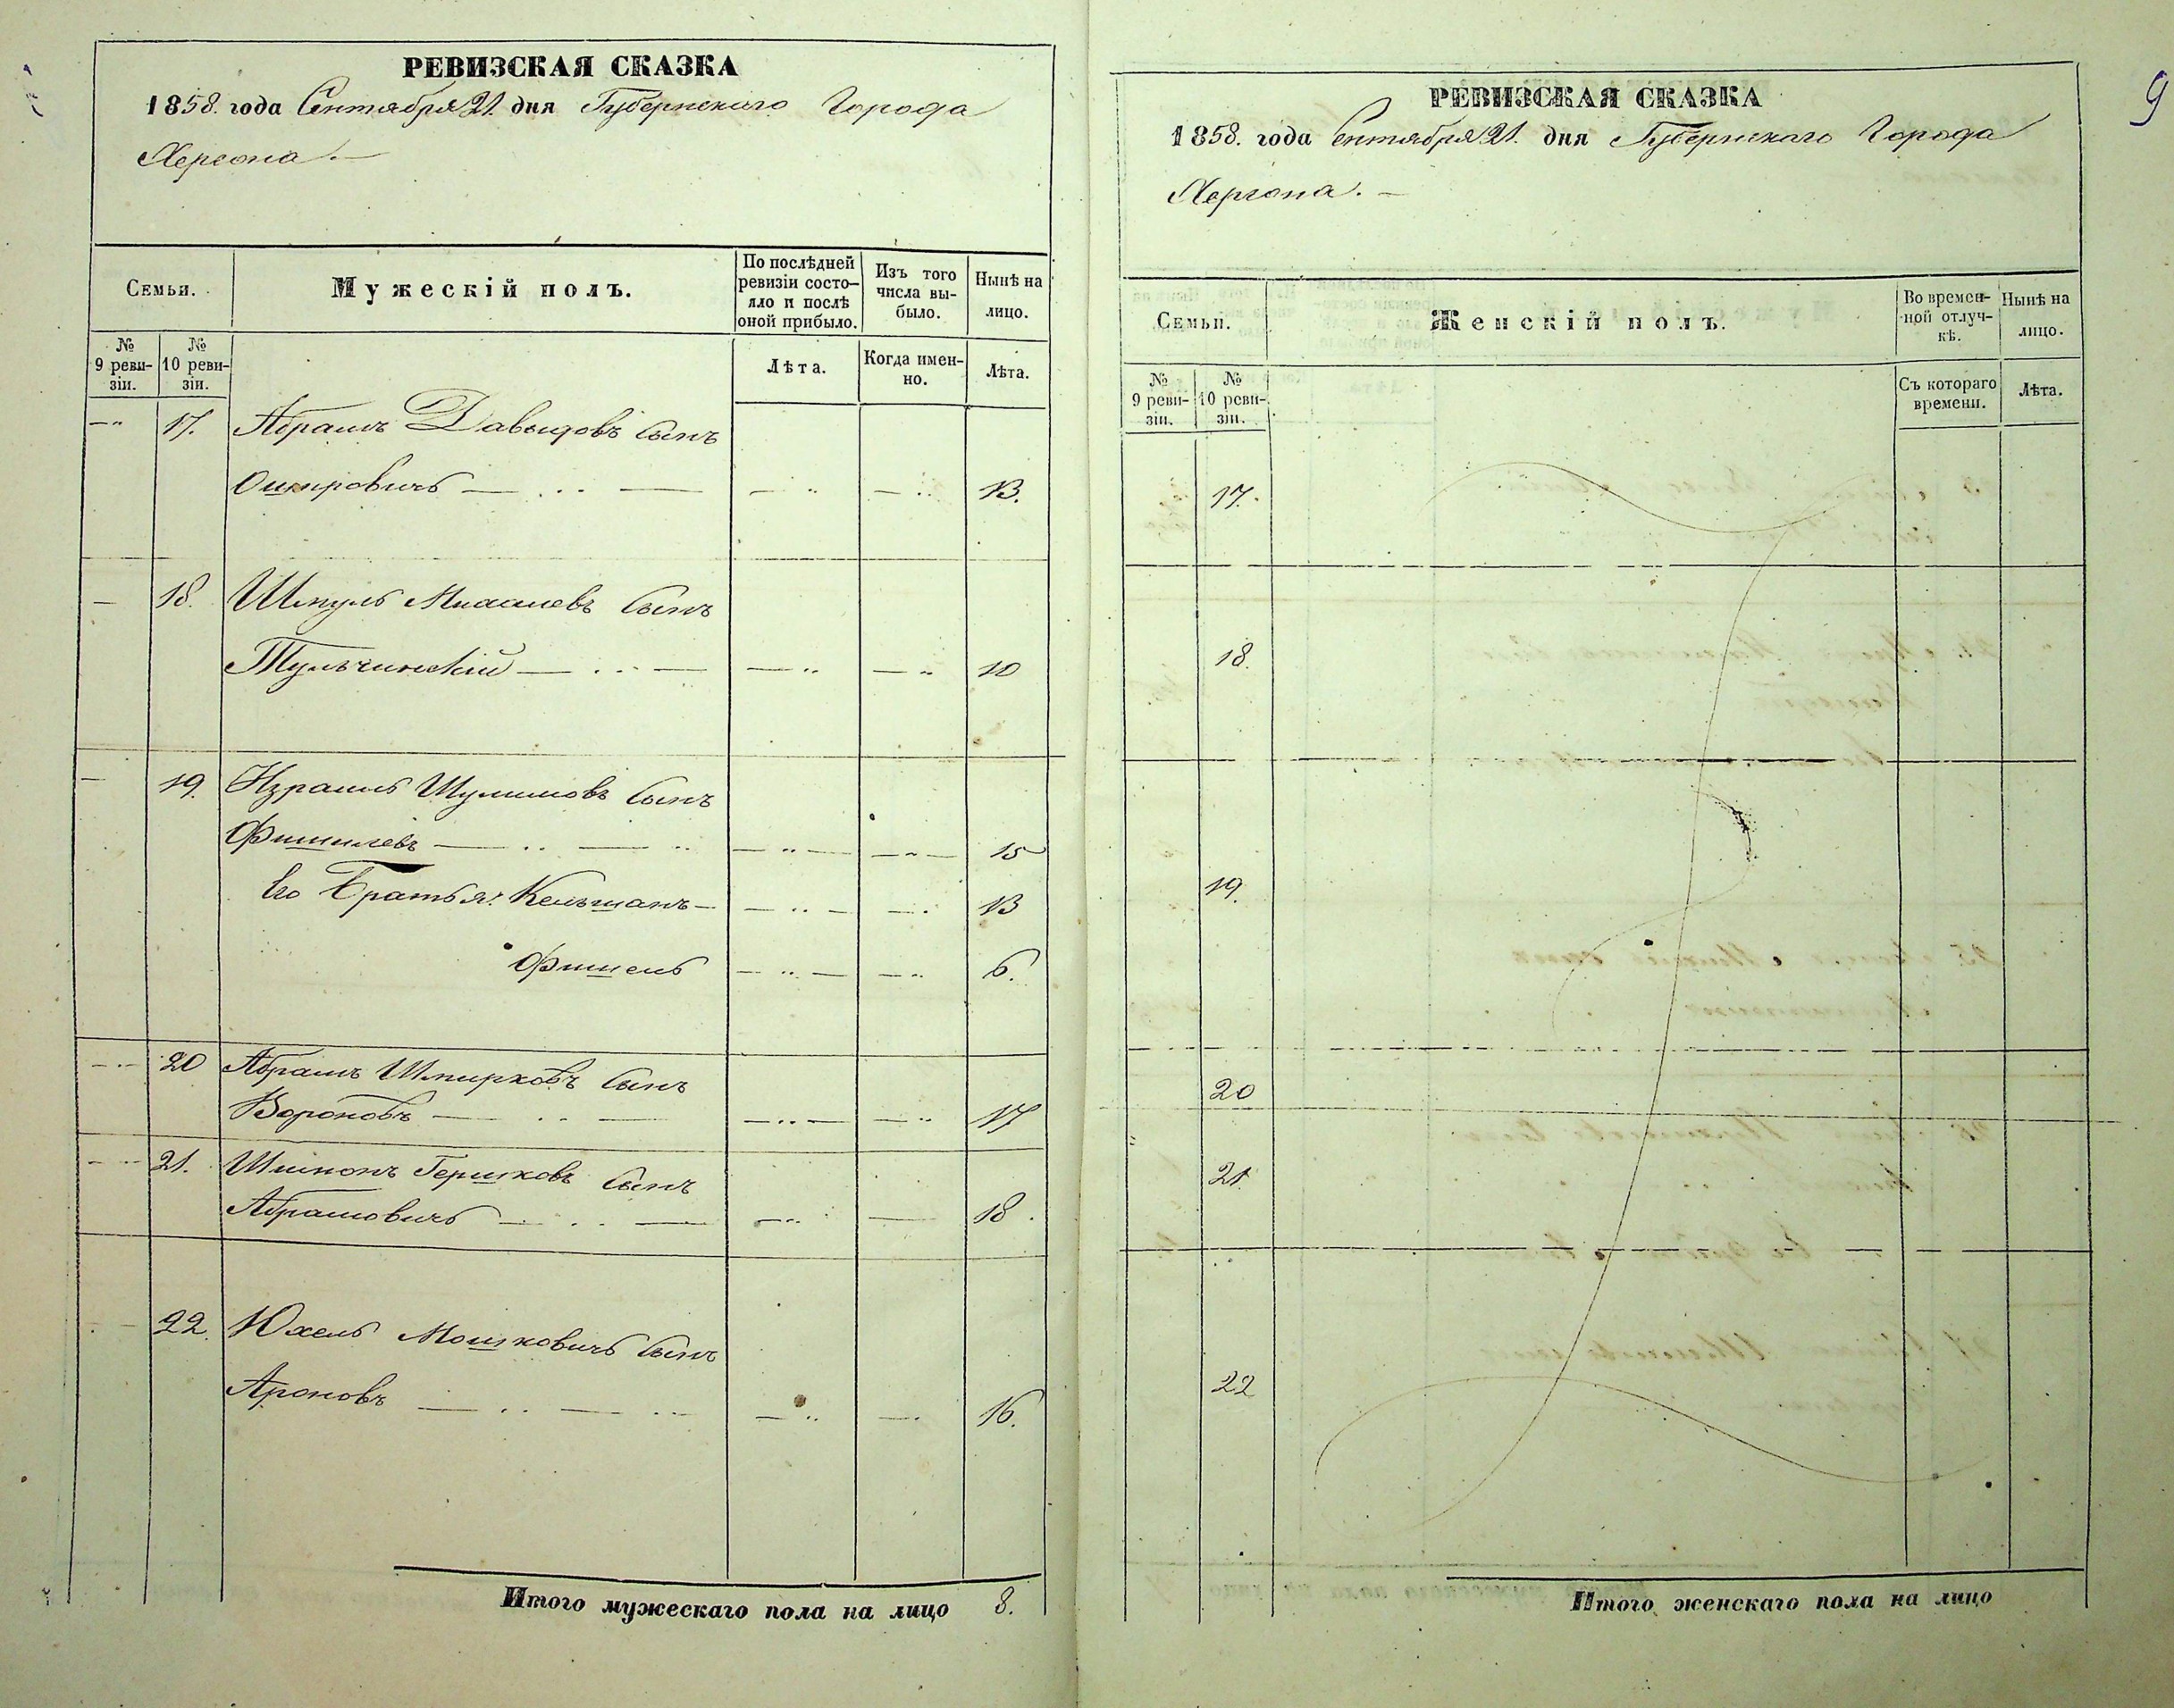 РЕВИЗСКАЯ СКАЗКА
1858. года Сентября 21. дня Губернскаго Города
Херсона. —
Семьи.
Мужескій полъ.
По послѣдней ревизіи состо-яло и послѣ оной прибыло.
Изъ того числа вы-было.
Нынѣ на лицо.
№ 9 реви-зіи.
№ 10 реви-зіи.
Лѣта.
Когда имен-но.
Лѣта.
17. Абрамъ Давыдовъ сынъ
13.
18. Шмуль сынъ
Тульчинскій 10
19. Израиль Шулимовъ сынъ
Фишилевъ 15
Его Братья: Кельманъ 13
Фишель 6.
20 Абрамъ сынъ
Вороновъ 17
21. Шимонъ Гершковъ сынъ
Абрамовичъ 18.
22. Юхель Мошковичъ сынъ
Ароновъ 16.
Итого мужескаго пола на лицо 8.
9
РЕВИЗСКАЯ СКАЗКА
1858. года Сентября 21. дня Губернскаго Города
Херсона. —
Семьи.
Женскій полъ.
Во времен-ной отлуч-кѣ.
Нынѣ на лицо.
№ 9 реви-зіи.
№ 10 реви-зіи.
Съ котораго времени.
Лѣта.
17.
18.
19.
20
21.
22
Итого женскаго пола на лицо